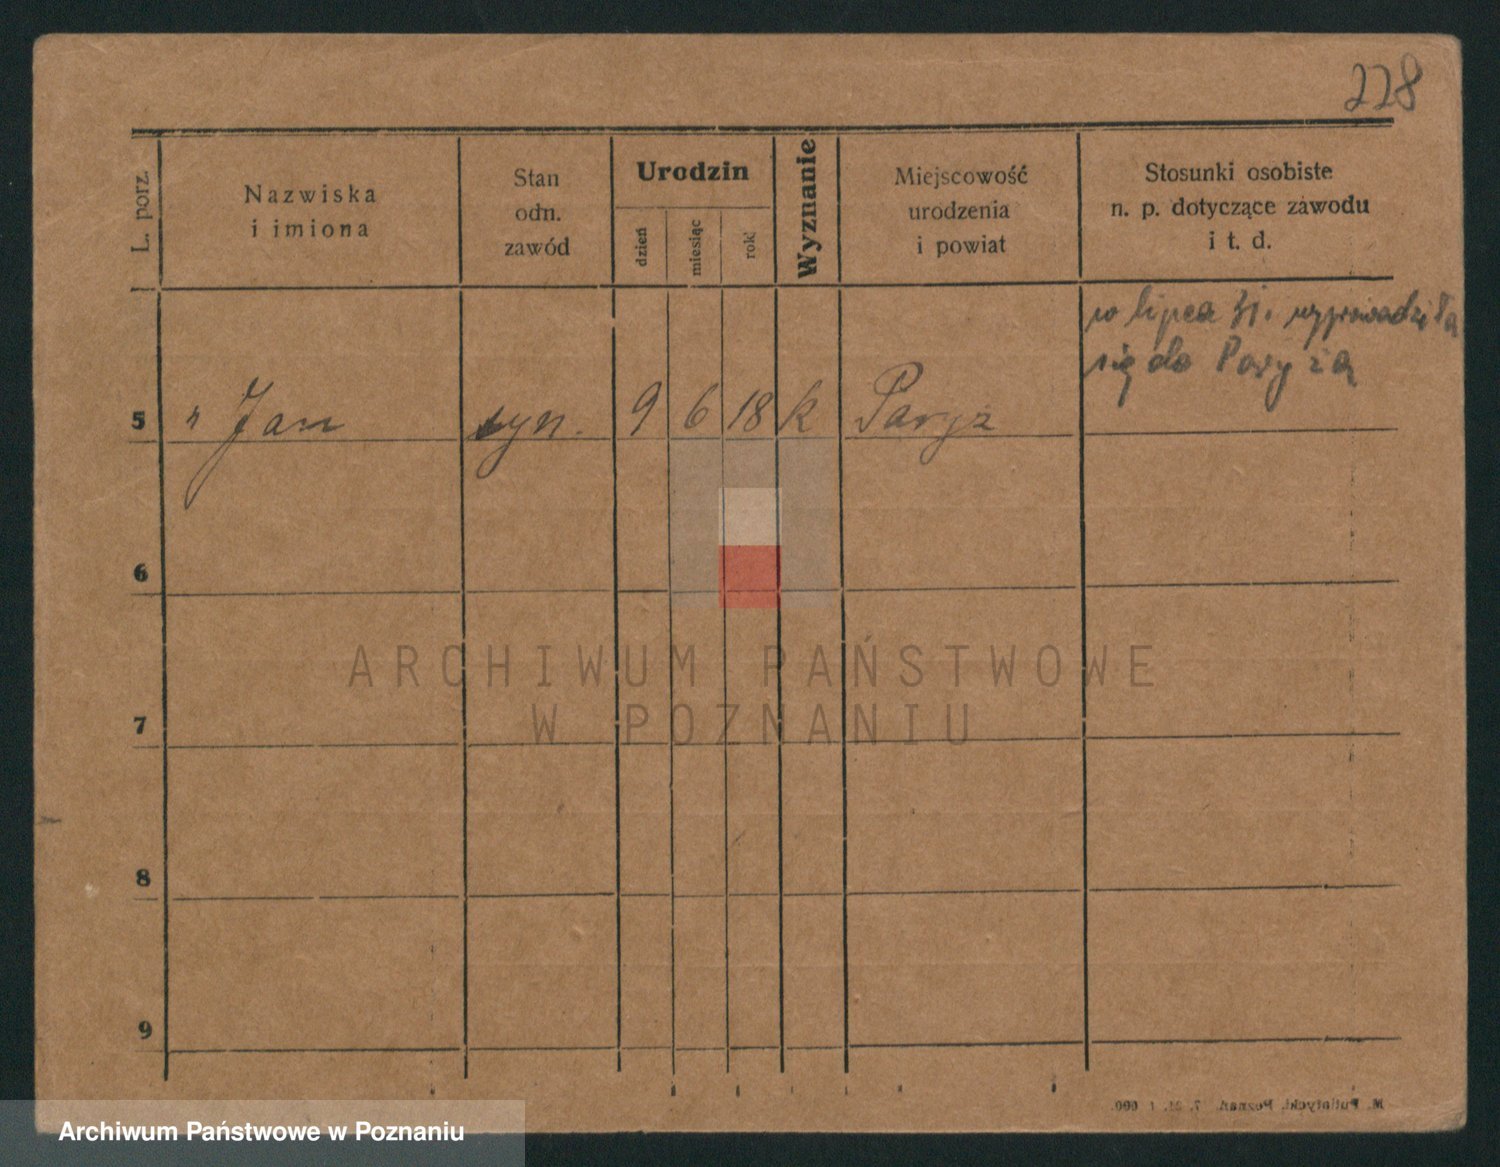 228
L. porz.
Nazwiska
i imiona
Stan
odn.
zawód
Urodzin
dzień
miesiąc
rok
Wyznanie
Miejscowość
urodzenia
i powiat
Stosunki osobiste
n. p. dotyczące zawodu
i t. d.
w lipca 31. wyprowadziła
się do Paryża
5 " Jan syn. 9 6 18 k Paryż
6
7
8
9
ARCHIWUM PAŃSTWOWE
W POZNANIU
M. Putiatycki, Poznań. 7. 21
Archiwum Państwowe w Poznaniu